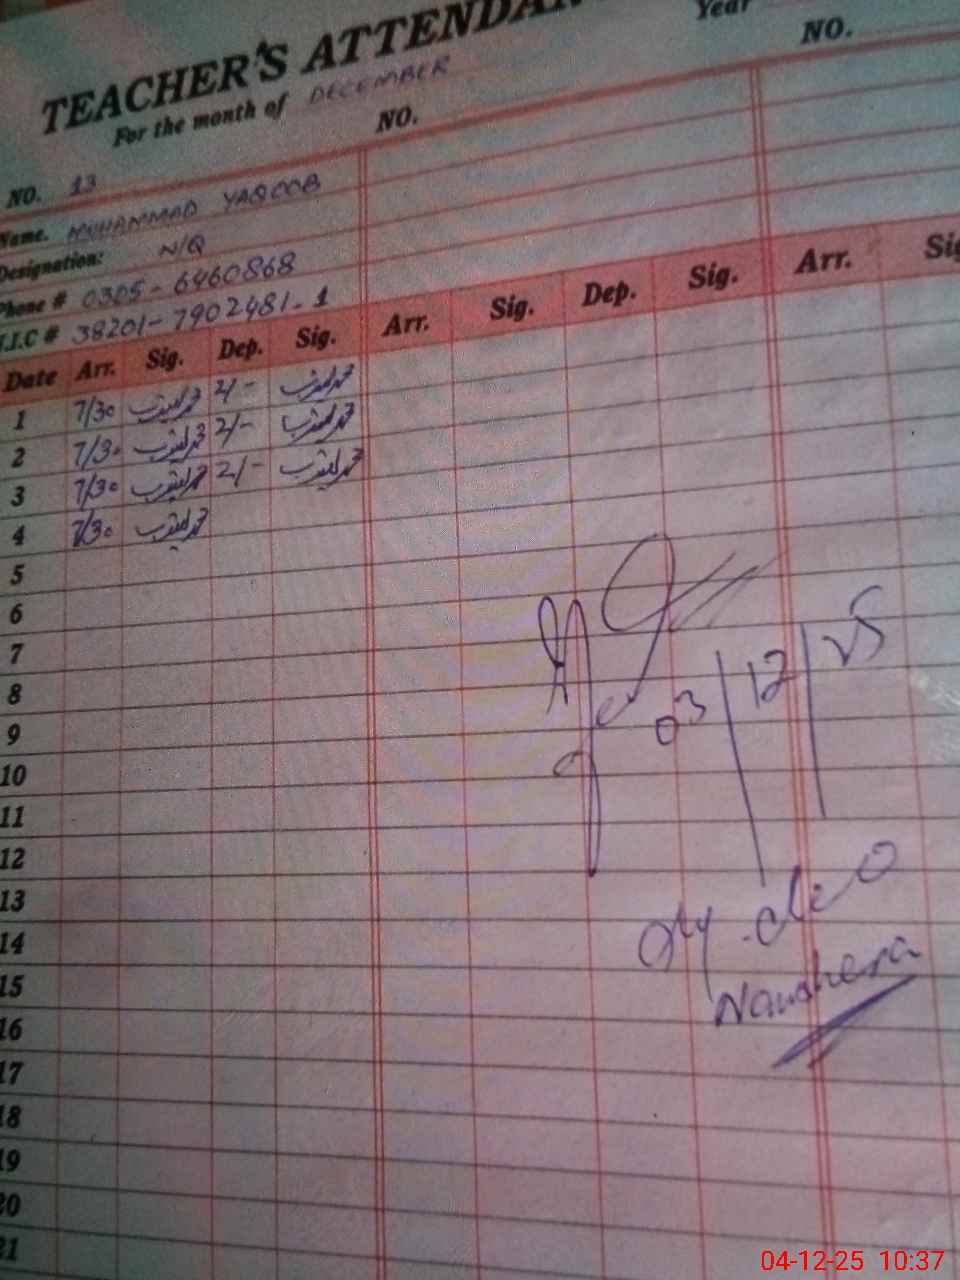 TEACHER'S ATTENDAN
Year
For the month of DECEMBER
NO. 13 NO. NO.
Name. MUHAMMAD YAQOOB
Designation: N/Q
Phone # 0305-6460868
I.C # 38201-7902481-1
Date Arr. Sig. Dep. Sig. Arr. Sig. Dep. Sig. Arr. Sig
1 7/30 محمد یعقوب 2/- محمد یعقوب
2 7/30 محمد یعقوب 2/- محمد یعقوب
3 7/30 محمد یعقوب 2/- محمد یعقوب
4 7/30 محمد یعقوب
5
6
7
8
03/12/25
9
10
11
12
13
14
Dy. DEO
15
Naushera
16
17
18
19
20
21
04-12-25 10:37